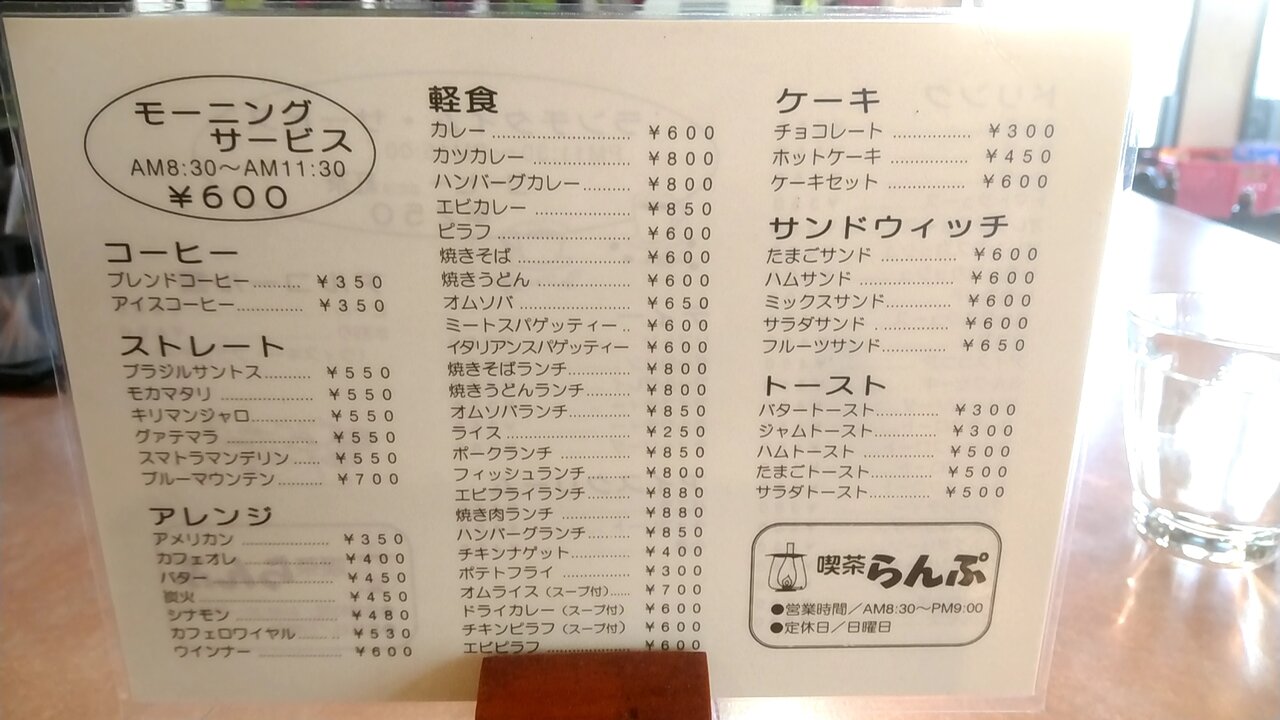 モーニング
サービス
AM8:30～AM11:30
￥600
コーヒー
ブレンドコーヒー.......... ￥350
アイスコーヒー.............. ￥350
ストレート
ブラジルサントス.......... ￥550
モカマタリ .................... ￥550
キリマンジャロ.............. ￥550
グァテマラ .................... ￥550
スマトラマンデリン ...... ￥550
ブルーマウンテン.......... ￥700
アレンジ
アメリカン .................... ￥350
カフェオレ .................... ￥400
バター ............................ ￥450
炭火 ................................ ￥450
シナモン ........................ ￥480
カフェロワイヤル.......... ￥530
ウインナー .................... ￥600
軽食
カレー ............................ ￥600
カツカレー .................... ￥800
ハンバーグカレー.......... ￥800
エビカレー .................... ￥850
ピラフ ............................ ￥600
焼きそば ........................ ￥600
焼きうどん .................... ￥600
オムソバ ........................ ￥650
ミートスパゲッティー .. ￥600
イタリアンスパゲッティー ￥600
焼きそばランチ.............. ￥800
焼きうどんランチ.......... ￥800
オムソバランチ.............. ￥850
ライス ............................ ￥250
ポークランチ ................ ￥850
フィッシュランチ.......... ￥800
エビフライランチ.......... ￥880
焼き肉ランチ ................ ￥880
ハンバーグランチ.......... ￥850
チキンナゲット.............. ￥400
ポテトフライ ................ ￥300
オムライス（スープ付）...... ￥700
ドライカレー（スープ付） ￥600
チキンピラフ（スープ付） ￥600
エビピラフ .................... ￥600
ケーキ
チョコレート ................ ￥300
ホットケーキ ................ ￥450
ケーキセット ................ ￥600
サンドウィッチ
たまごサンド ................ ￥600
ハムサンド .................... ￥600
ミックスサンド.............. ￥600
サラダサンド ................ ￥600
フルーツサンド.............. ￥650
トースト
バタートースト.............. ￥300
ジャムトースト.............. ￥300
ハムトースト ................ ￥500
たまごトースト.............. ￥500
サラダトースト.............. ￥500
喫茶らんぷ
●営業時間／AM8:30～PM9:00
●定休日／日曜日